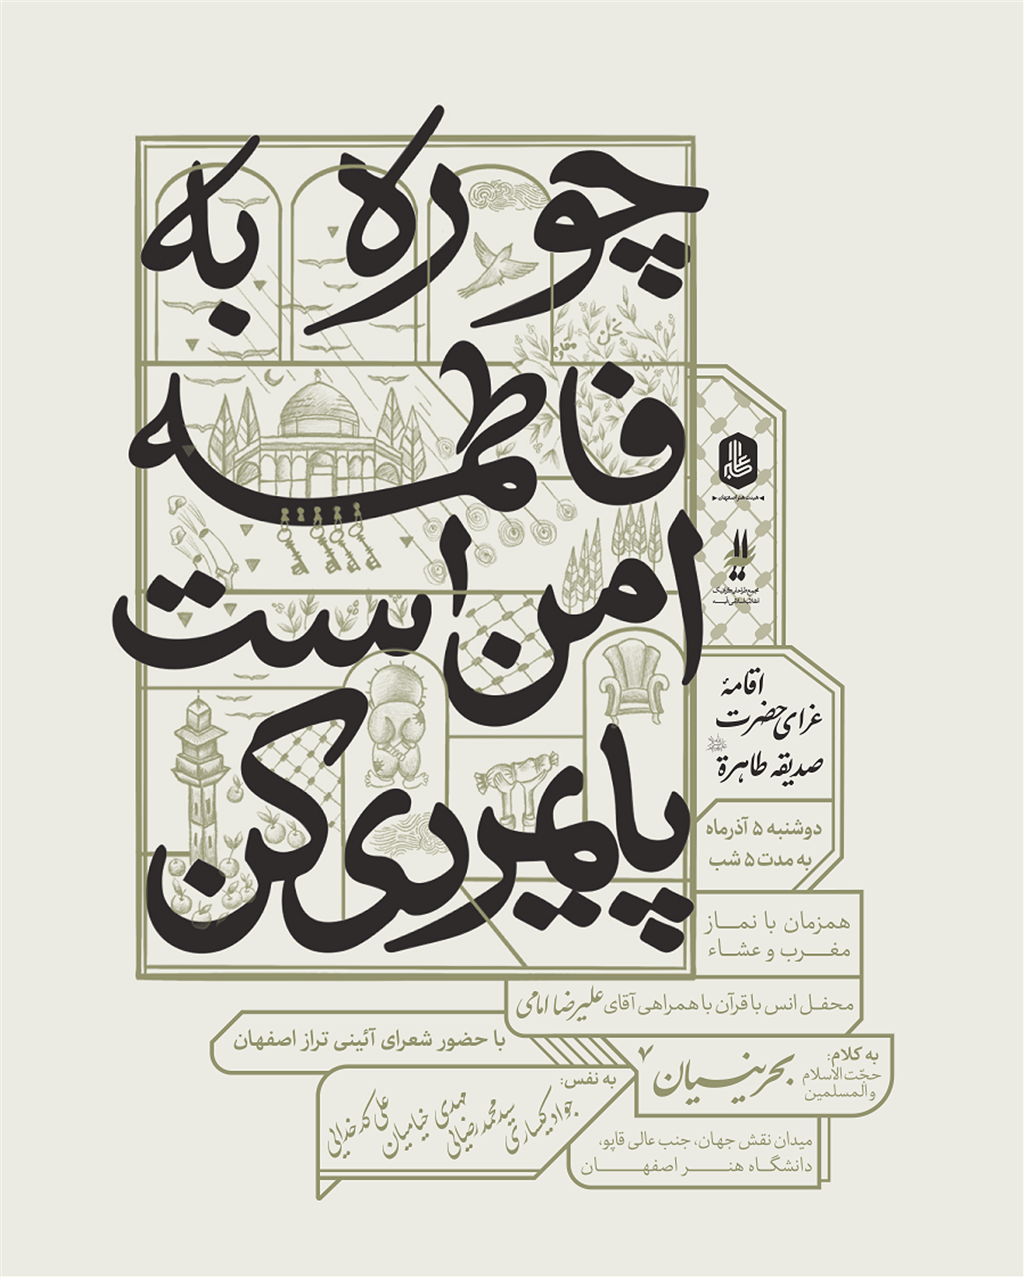 چو ره به
فاطمه
امن است
پایمردی کن
هیئت هنر اصفهان
اقامهٔ
عزای حضرت
صدیقه طاهرة
دوشنبه ۵ آذرماه
به مدت ۵ شب
همزمان با نماز
مغرب و عشاء
محفل انس با قرآن با همراهی آقای علیرضا امامی
با حضور شعرای آئینی تراز اصفهان
به کلام:
حجّت الاسلام
والمسلمین
بحرینیان
به نفس:
جواد یکساری
سیدمحمد رضیائی
مهدی خیامیان
علی کدخدایی
میدان نقش جهان، جنب عالی قاپو،
دانشگاه هنر اصفهان